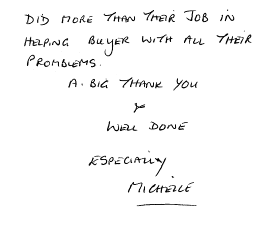 DID MORE THAN THEIR JOB IN
HELPING BUYER WITH ALL THEIR
PROMBLEMS.
A. BIG THANK YOU
&
WELL DONE
ESPECIALLY
MICHELLE